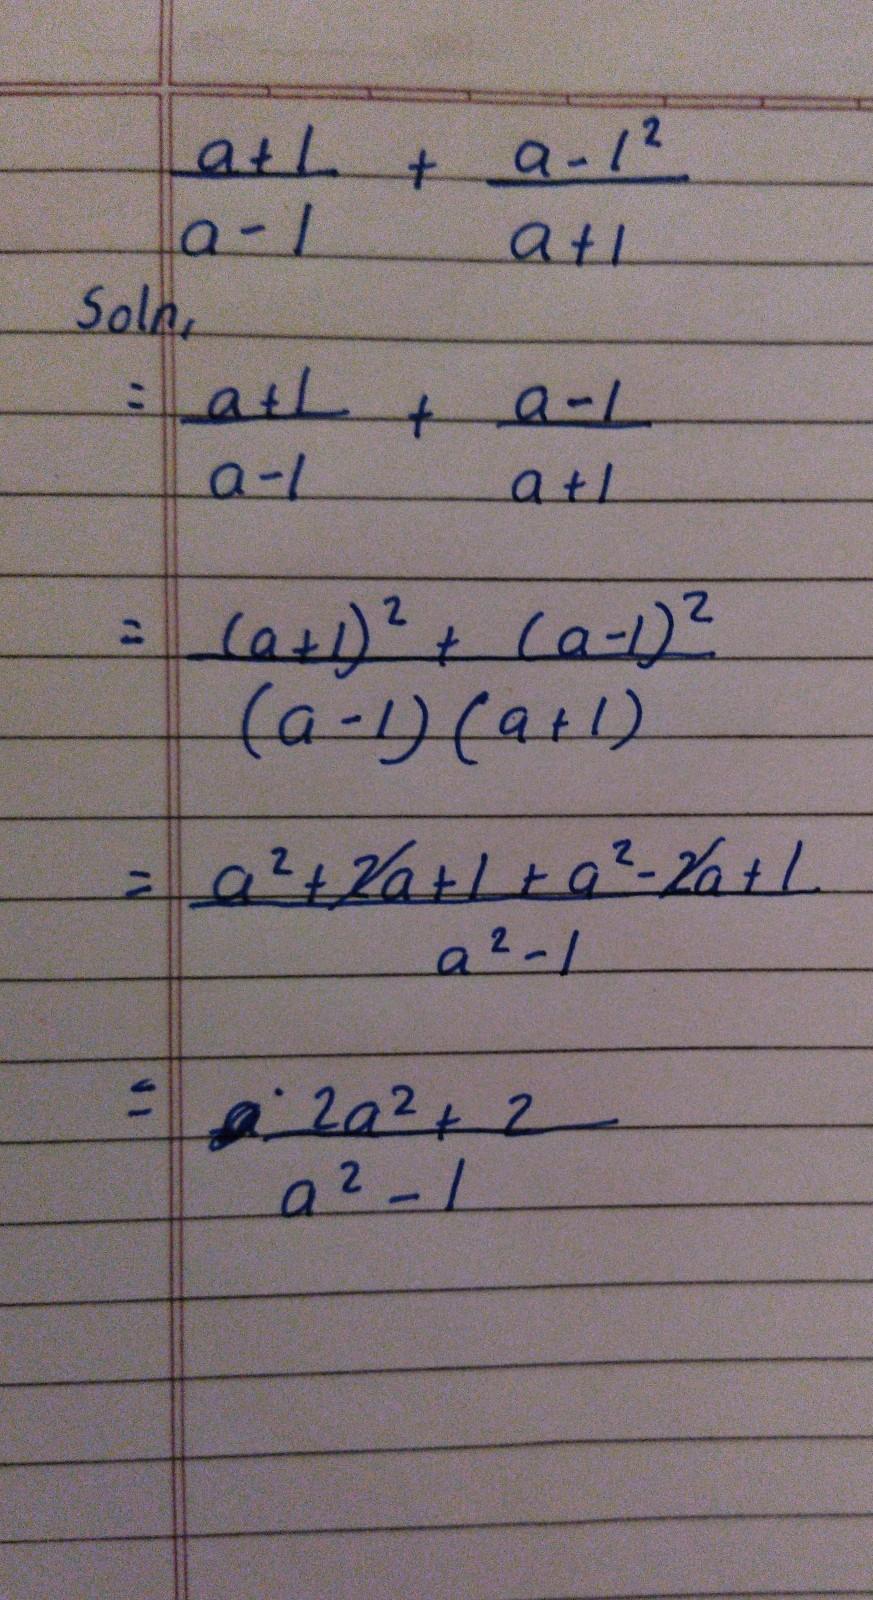 a+1/a-1 + a-1²/a+1
Soln,
= a+1/a-1 + a-1/a+1
= (a+1)² + (a-1)²/(a-1)(a+1)
= a²+2a+1+a²-2a+1/a²-1
= 2a²+2/a²-1